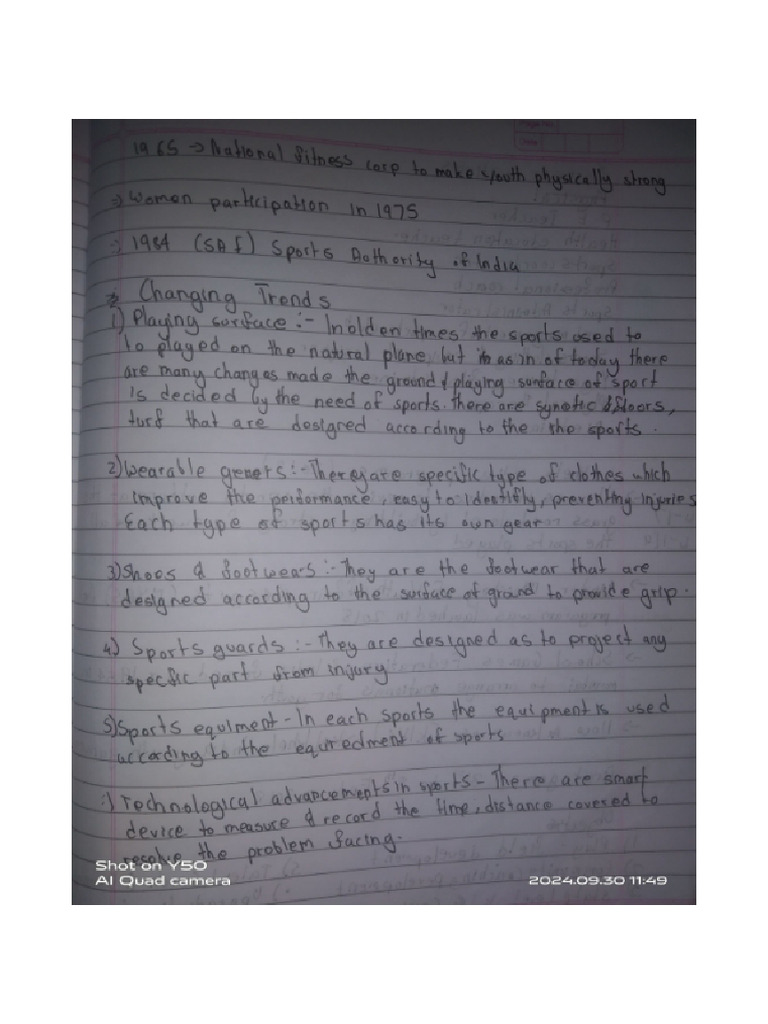 1965 → National fitness corp to make youth physically strong
⇒ Women participation in 1975
⇒ 1984 (SAI) Sports Authority of India
Changing Trends
1) Playing surface :- In olden times the sports used to
to played on the natural plane, but in as in of today there
are many changes made the ground & playing surface of sport
is decided by the need of sports. There are synetic floors,
turf that are designed according to the the sports.
2) Wearable :- There are specific type of clothes which
improve the performance, easy to identifly, preventing injuries
Each type of sports has its own gear
3) Shoes & footwears :- They are the footwear that are
designed according to the surface of ground to provide grip.
4) Sports guards :- They are designed as to project any
specfic part from injury
5) Sports equiment - In each sports the equipment is used
according to the equiredment of sports
Technological advancements in sports - There are smart
device to measure & record the time, distance covered to
resolve the problem facing.
Shot on Y50
AI Quad camera
2024.09.30 11:49